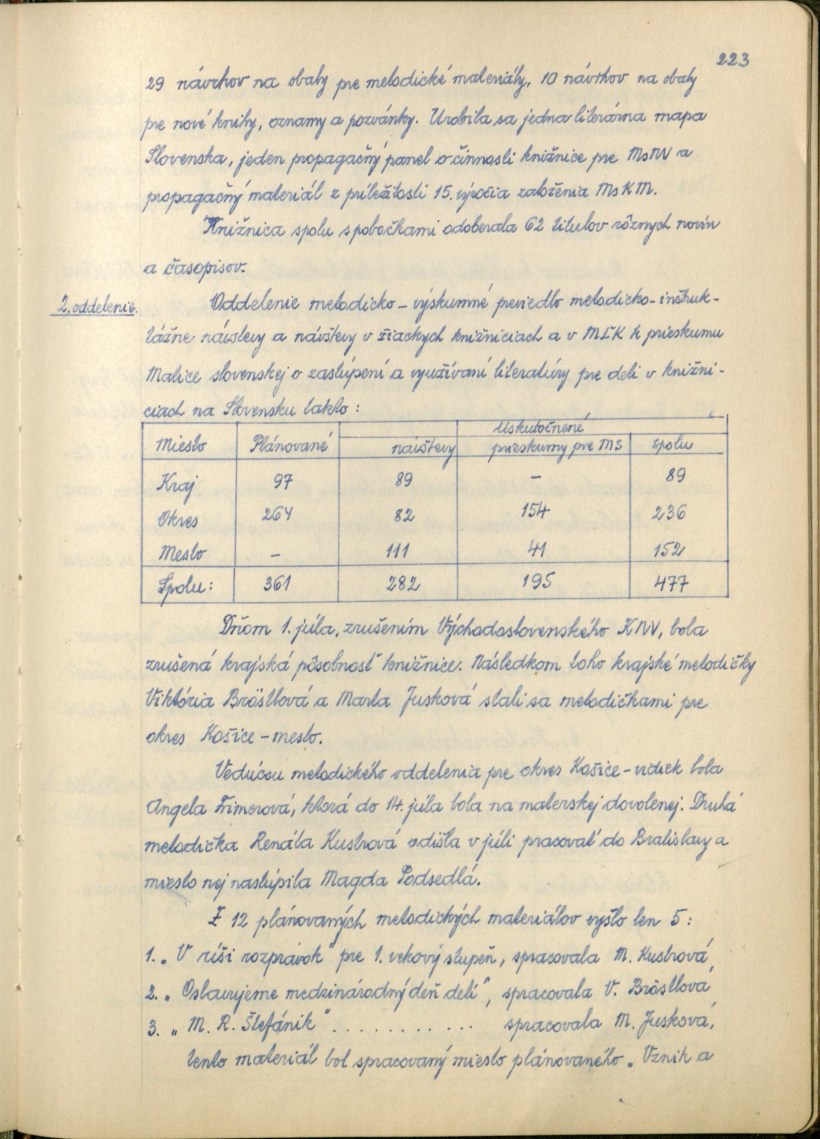 223
29 návrhov na obaly pre metodické materiály, 10 návrhov na obaly
pre nové knihy, oznamy a pozvánky. Urobila sa jedna literárna mapa
Slovenska, jeden propagačný panel o činnosti knižnice pre MsNV a
propagačný materiál z príležitosti 15. výročia založenia MsKM.
Knižnica spolu s pobočkami odoberala 62 titulov rôznych novín
a časopisov.
2. oddelenie. Oddelenie metodicko-výskumné previedlo metodicko-inštruk-
tážne návstevy a návštevy v žiackych knižniciach a v MĽK k prieskumu
Matice slovenskej o zastúpení a využívaní literatúry pre deti v knižni-
ciach na Slovensku takto:
Uskutočnené
Miesto Plánované návštevy prieskumy pre MS spolu
Kraj 97 89 – 89
Okres 264 82 154 236
Mesto – 111 41 152
Spolu: 361 282 195 477
Dňom 1. júla, zrušením Východoslovenského KNV, bola
zrušená krajská pôsobnosť knižnice. Následkom toho krajské metodičky
Viktória Bröstlová a Marta Jusková stali sa metodičkami pre
okres Košice-mesto.
Vedúcou metodického oddelenia pre okres Košice-vidiek bola
Angela Frimerová, ktorá do 14. júla bola na materskej dovolenej. Druhá
metodička Renáta Kustrová odišla v júli pracovať do Bratislavy a
miesto nej nastúpila Magda Podsedlá.
Z 12 plánovaných metodických materiálov vyšlo len 5:
1. „V ríši rozprávok" pre 1. vekový stupeň, spracovala M. Kustrová,
2. „Oslavujeme medzinárodný deň detí", spracovala V. Bröstlová,
3. „M. R. Štefánik" . . . . . . . . . . . . spracovala M. Jusková,
tento materiál bol spracovaný miesto plánovaného „Vznik a